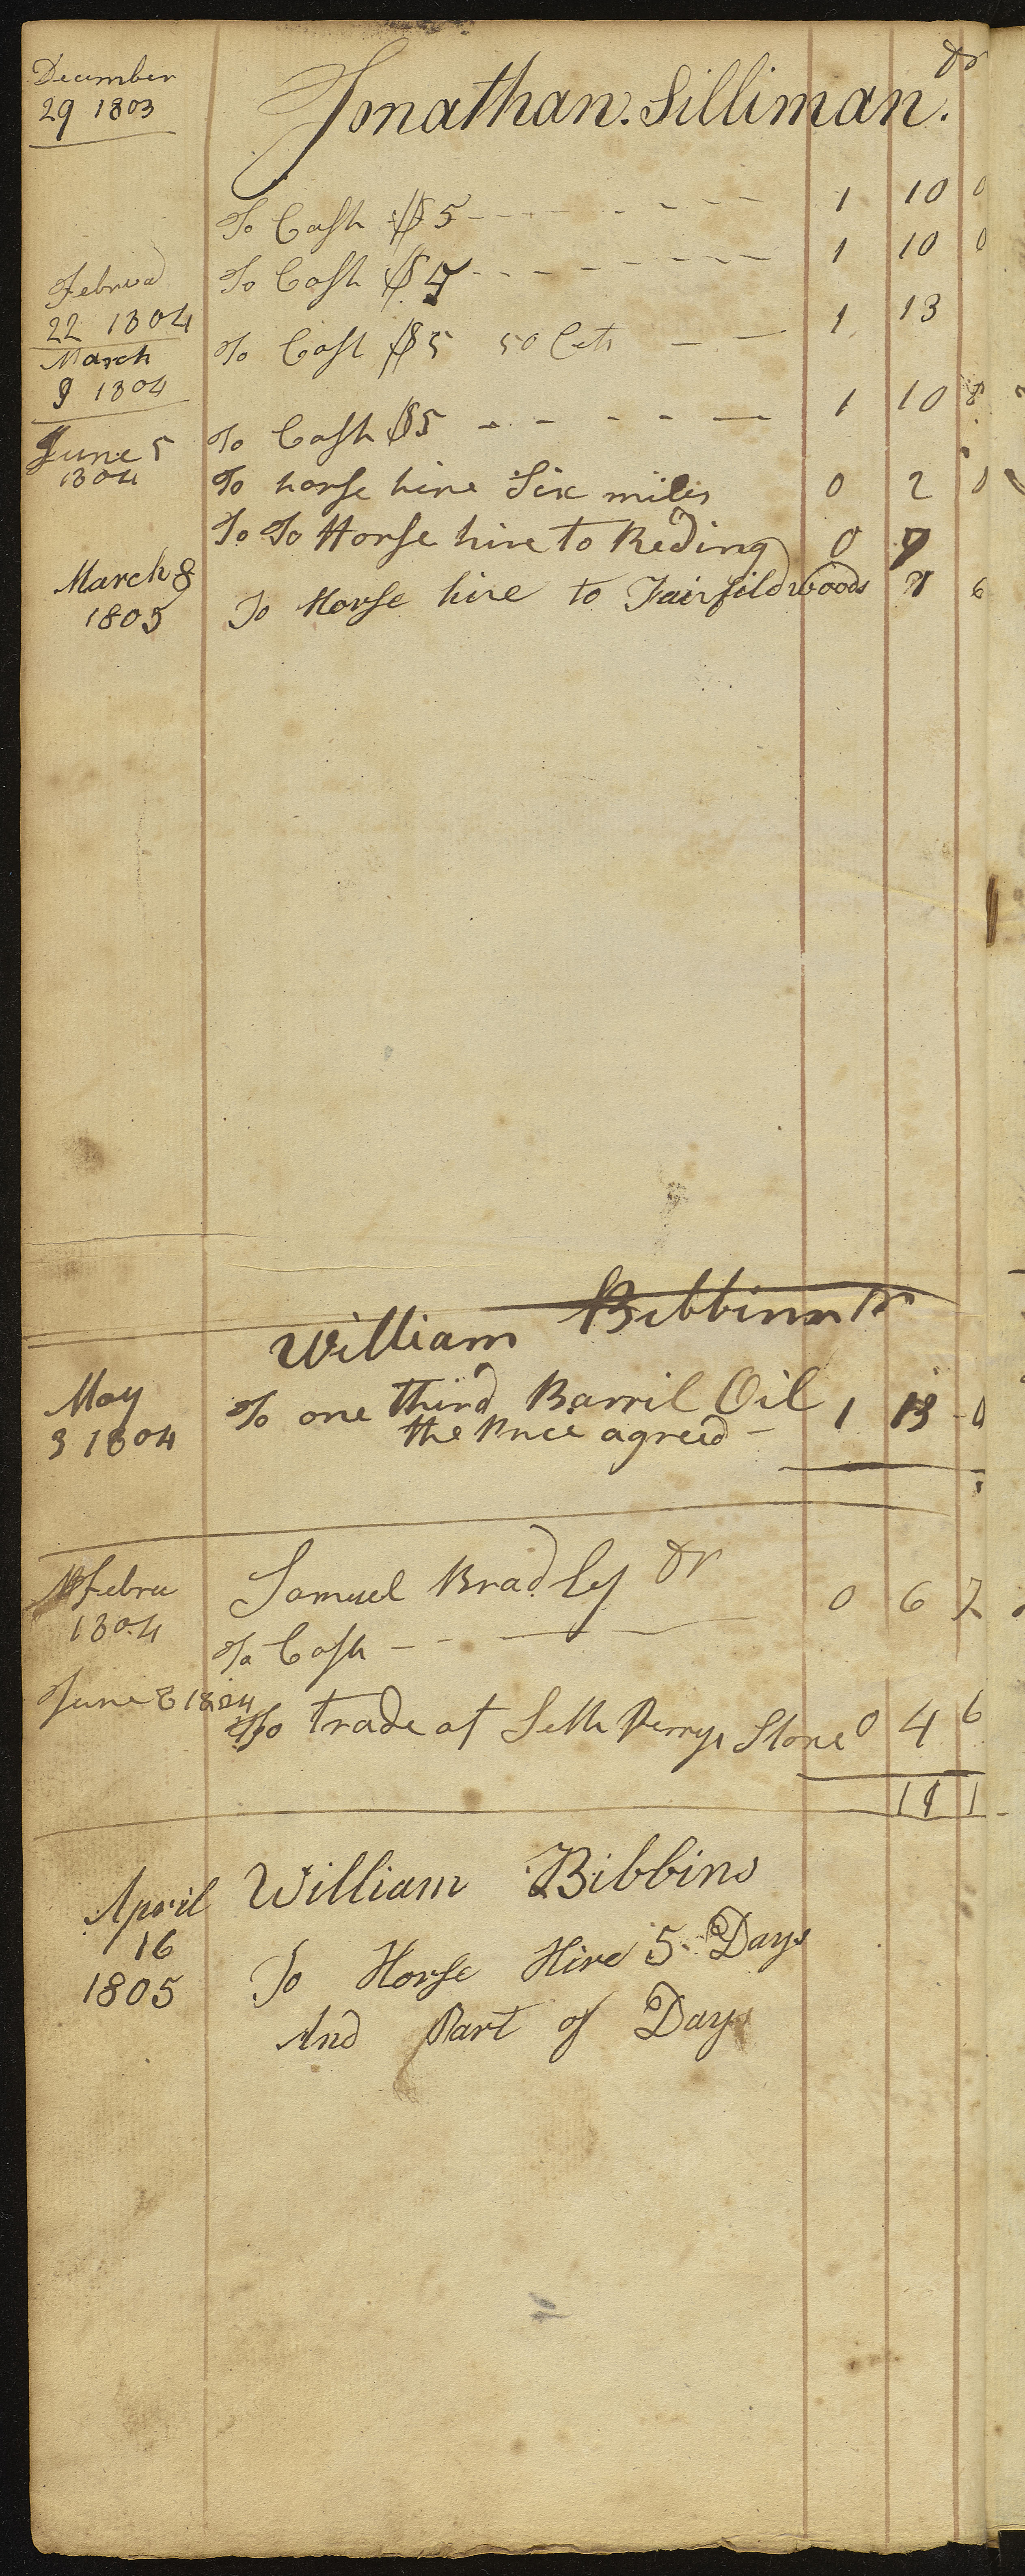 December
29 1803
Jonathan. Silliman. Dr
To Cash $5 1 10 0
To Cash $5 1 10 0
Februa
22 1804
To Cash $5 50 Cets 1 13
March
9 1804
To Cash $5 1 10 8
June 5
1804
To horse hire Six miles 0 2 0
To To Horse hire to Reding 0 7
March 8
1805
To Horse hire to Fairfild woods 7 6
William Bibbins Dr
May
3 1804
To one third Barril Oil 1 13 - 0
the Price agreed -
Febru
1804
Samuel Bradley Dr
To Cash 0 6 7
June 8 1804
To trade at Seth Perrys Store 0 4 6
11 1
April
16
1805
William Bibbins
To Horse Hire 5 Days
And Part of Days